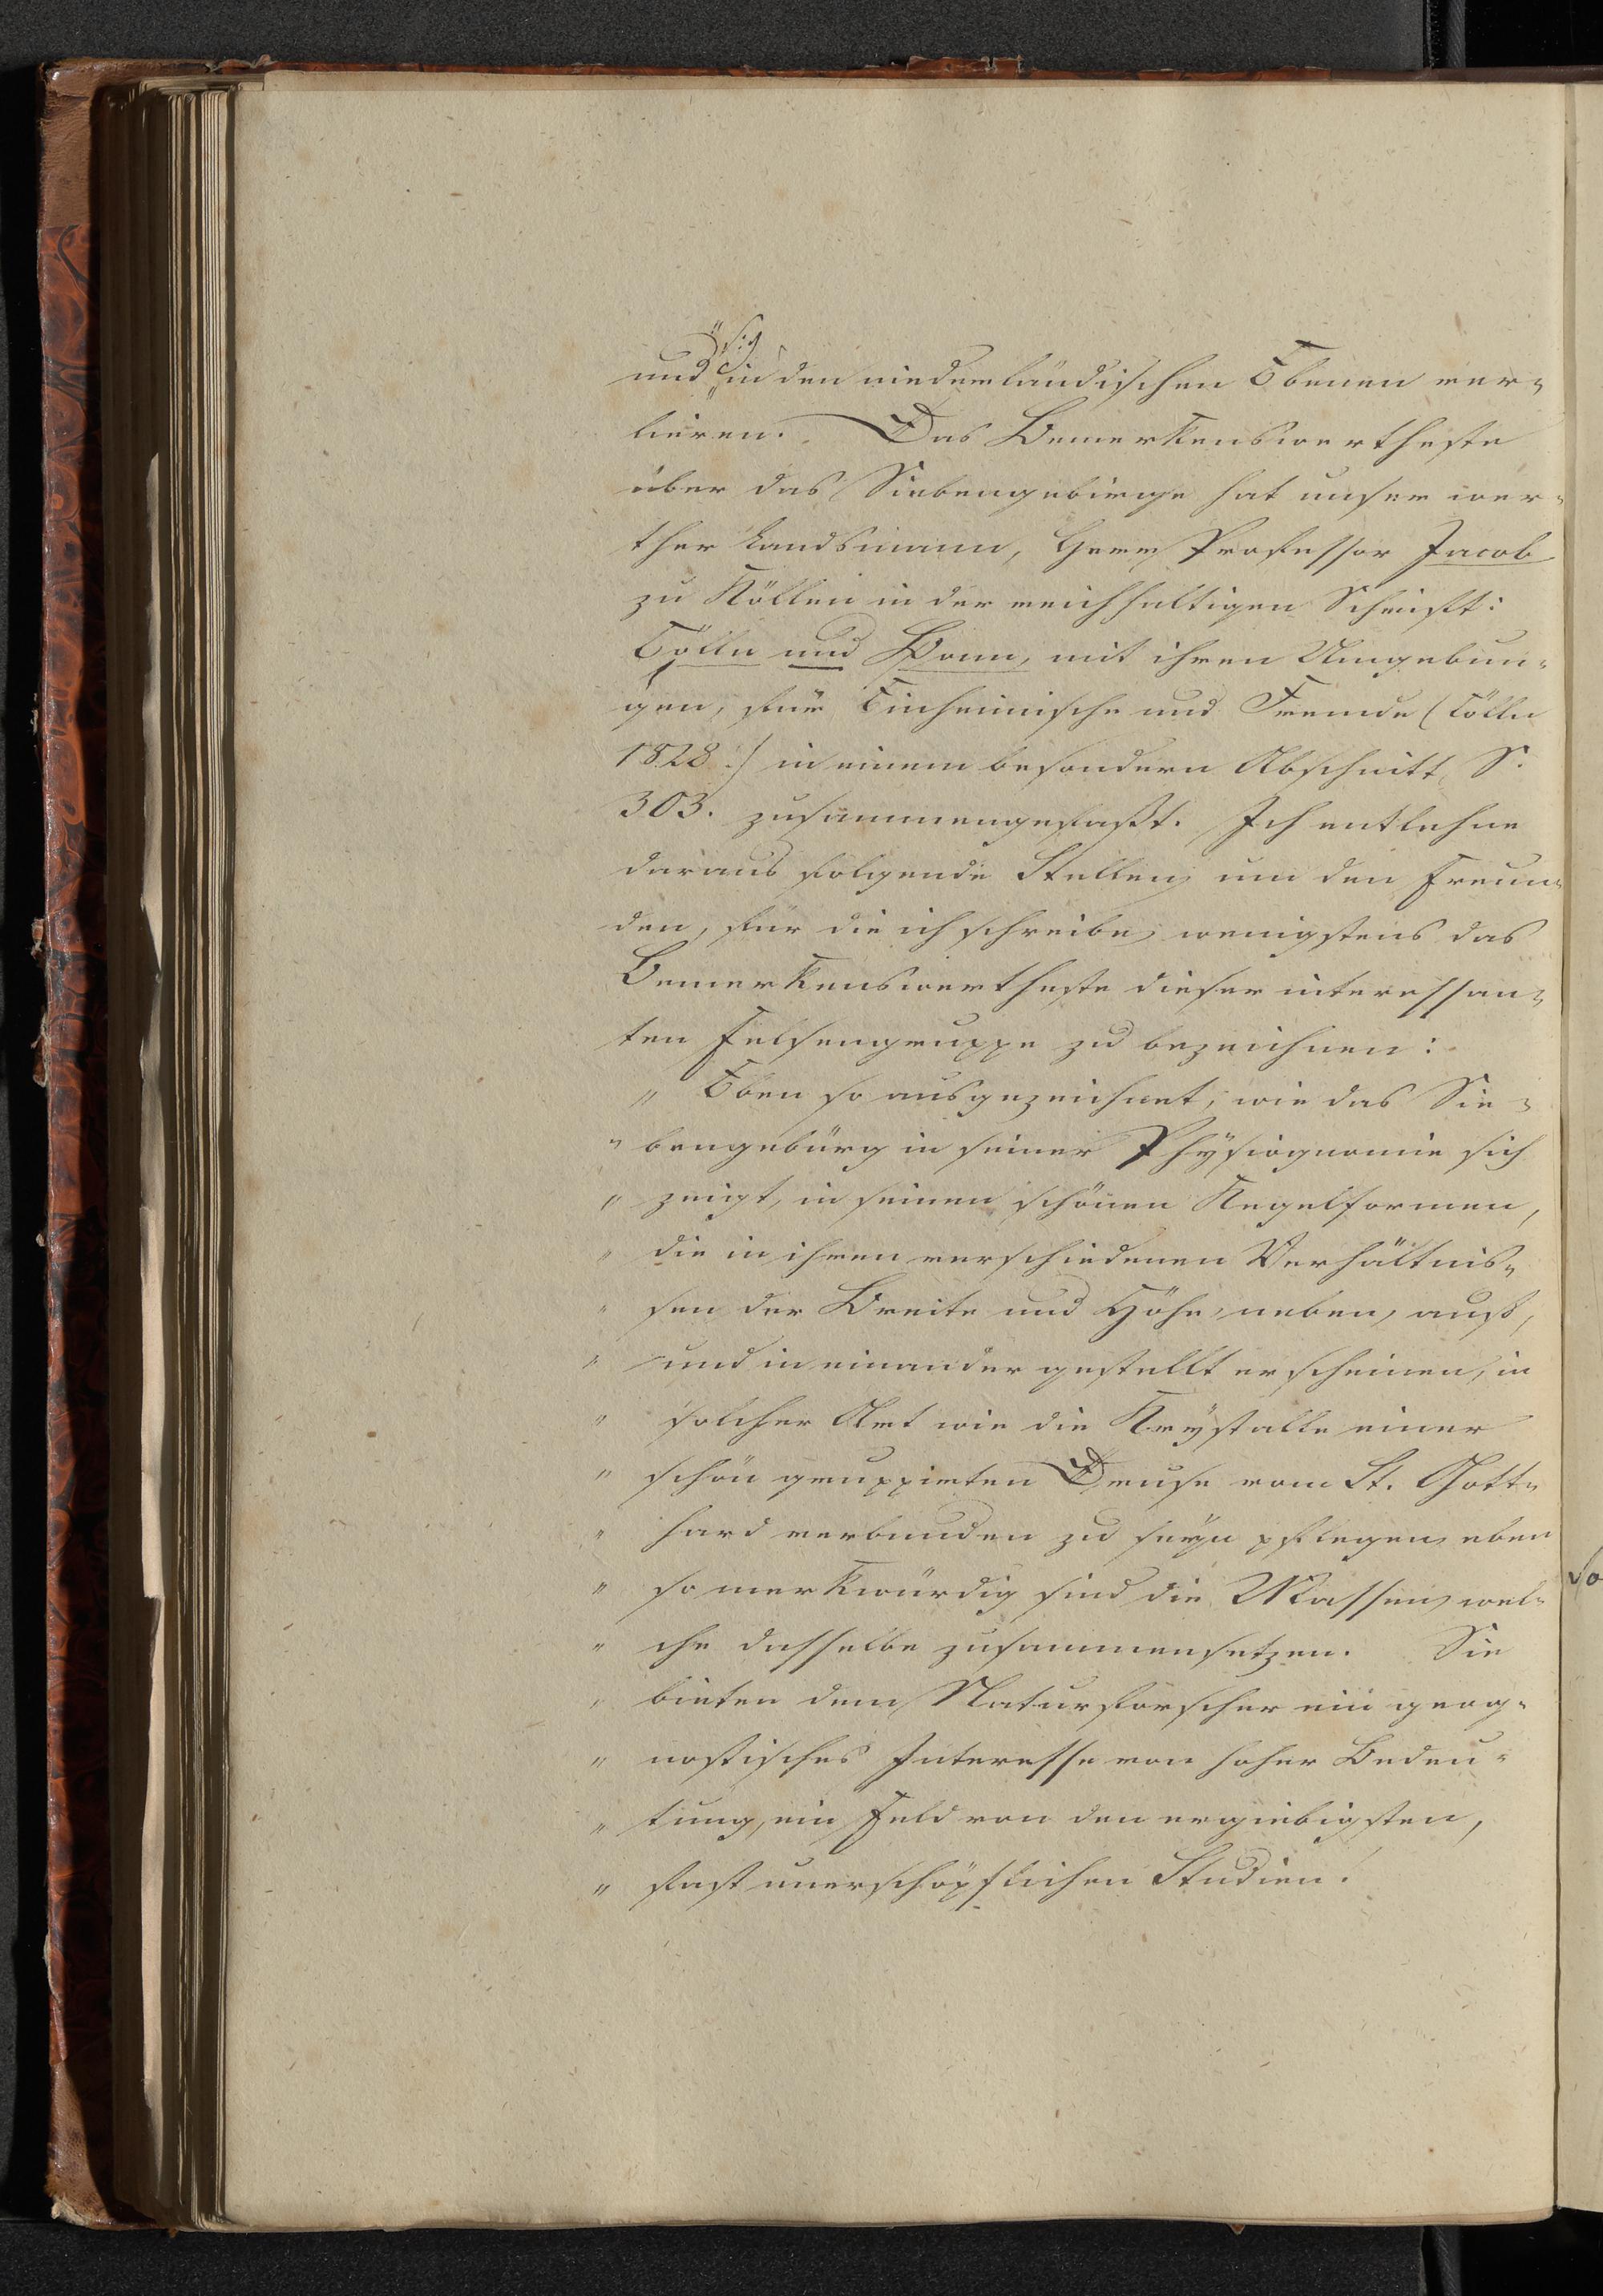 und sich in den niederländischen Ebenen ver=
lieren. Das Bemerkenswertheste
über das Siebengebirge hat unser wer=
ther Landsmann, Herr Professor Jacob
zu Köllen in der reichhaltigen Schrift:
Cölln und Bonn, mit ihren Umgebun=
gen, für Einheimische und Fremde (Cölln
1828.) in einem besondern Abschnitt S.
303. zusammengefaßt. Ich entlehne
daraus folgende Stellen, um den Freun=
den, für die ich schreibe, wenigstens das
Bemerkenswertheste dieser interessan=
ten Felsengruppe zu bezeichnen:
„ Eben so ausgezeichnet, wie das Sie=
„ bengebürg in seiner Physiognomie sich
„ zeigt, in seinen schönen Kegelformen,
„ die in ihren verschiedenen Verhältnis=
„ sen der Breite und Höhe, neben, auf,
„ und in einander gestellt erscheinen, in
„ solcher Art wie die Krystalle einer
„ schön gruppirten Druse vom St. Gott=
„ hard verbunden zu seyn pflegen, eben
„ so merkwürdig sind die Massen, wel=
„ che dasselbe zusammensetzen. Sie
„ bieten dem Naturforscher ein geog=
„ nostisches Interesse von hoher Bedeu=
„ tung, ein Feld von den ergiebigsten,
„ fast unerschöpflichen Studien.